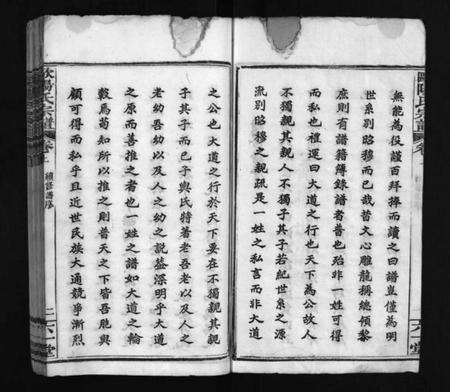 無能為役謹百拜捧而讀之曰譜豈僅為明
世系別昭穆而已哉昔文心雕龍稱總領黎
庶則有譜籍簿錄譜者普也殆非一姓可得
而私也禮運曰大道之行也天下為公故人
不獨親其親人不獨子其子若紀世系之源
流別昭穆之親疏是一姓之私言而非大道
之公也大道之行於天下要在不獨親其親
子其子而已子輿氏特著老吾老以及人之
老幼吾幼以及人之幼之說蓋深明乎大道
之原而善推之者也一姓之譜如大道之輪
轂焉苟知所以推之則普天之下皆吾胞與
顧可得而私乎且近世民族大通競爭漸烈
歐陽氏宗譜
譜序
二
六一堂